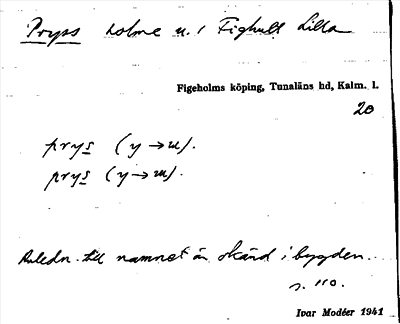 Pryss holme u. i Fighult Lilla
Figeholms köping, Tunaläns hd, Kalm. l.
20
prys (y→u).
prys (y→u).
Anledn. till namnet är okänd i bygden.
s. 110.
Ivar Modéer 1941